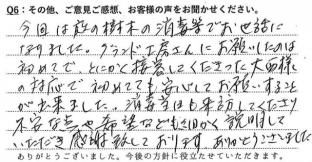 Q6：その他、ご意見ご感想、お客様の声をお聞かせください。
今回は庭の樹木の消毒等でお世話に
なりました。グランド工房さんにお願いしたのは
初めてで、とにかく接客してくださった大西様
の対応で初めてでも安心してお願いすること
が出来ました。消毒等にも来訪してくださり
不安な点や希望なども細かく説明して
いただき感謝致しております。ありがとうございました
ありがとうございました。今後の方針に役立たせていただきます。